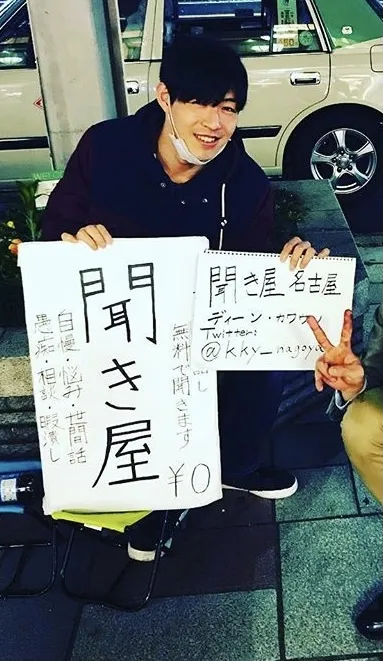 無料で聞きます
¥0
聞き屋
自慢・悩み・世間話
愚痴・相談・暇潰し
聞き屋 名古屋
ディーン・カワウソ
Twitter:
@kky_nagoya